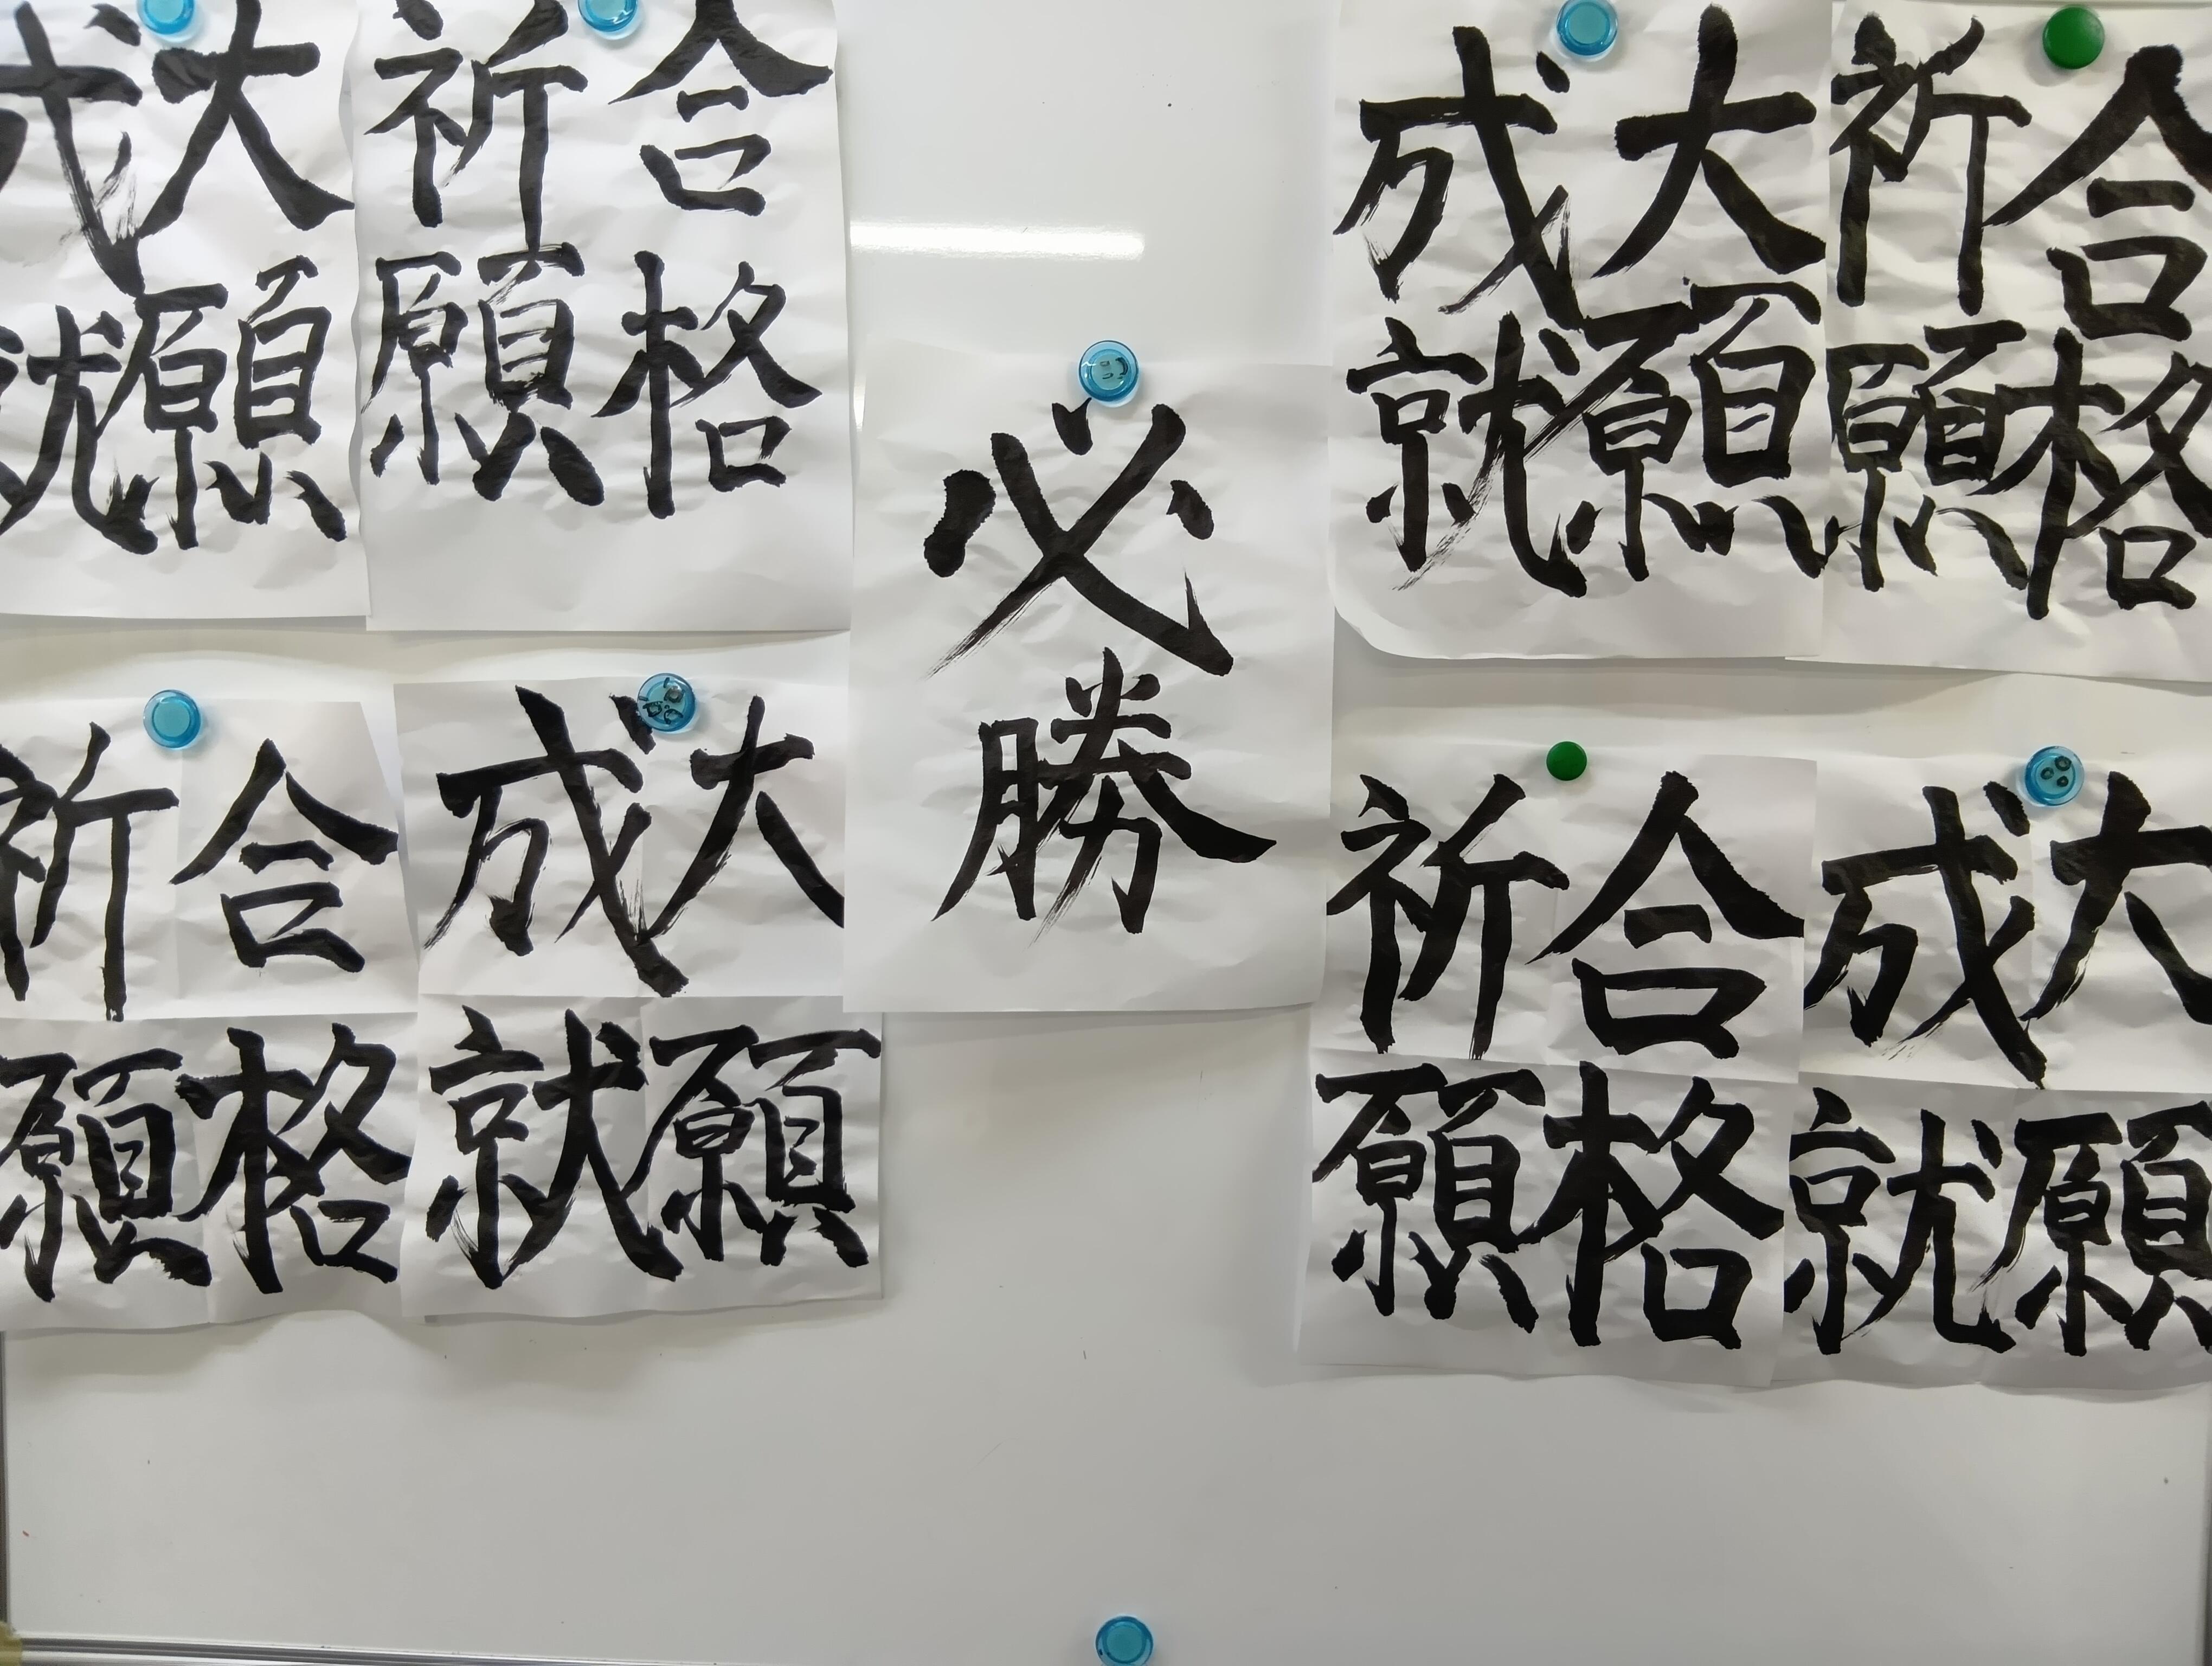 合格
祈願
大願
成就
必勝
合格
祈願
大願
成就
大願
成就
合格
祈願
大願
成就
合格
祈願